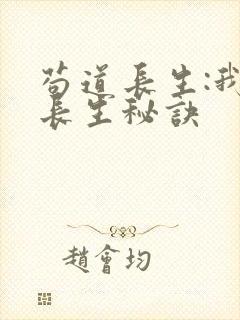 苟道長生:我
長生秘訣
趙會均